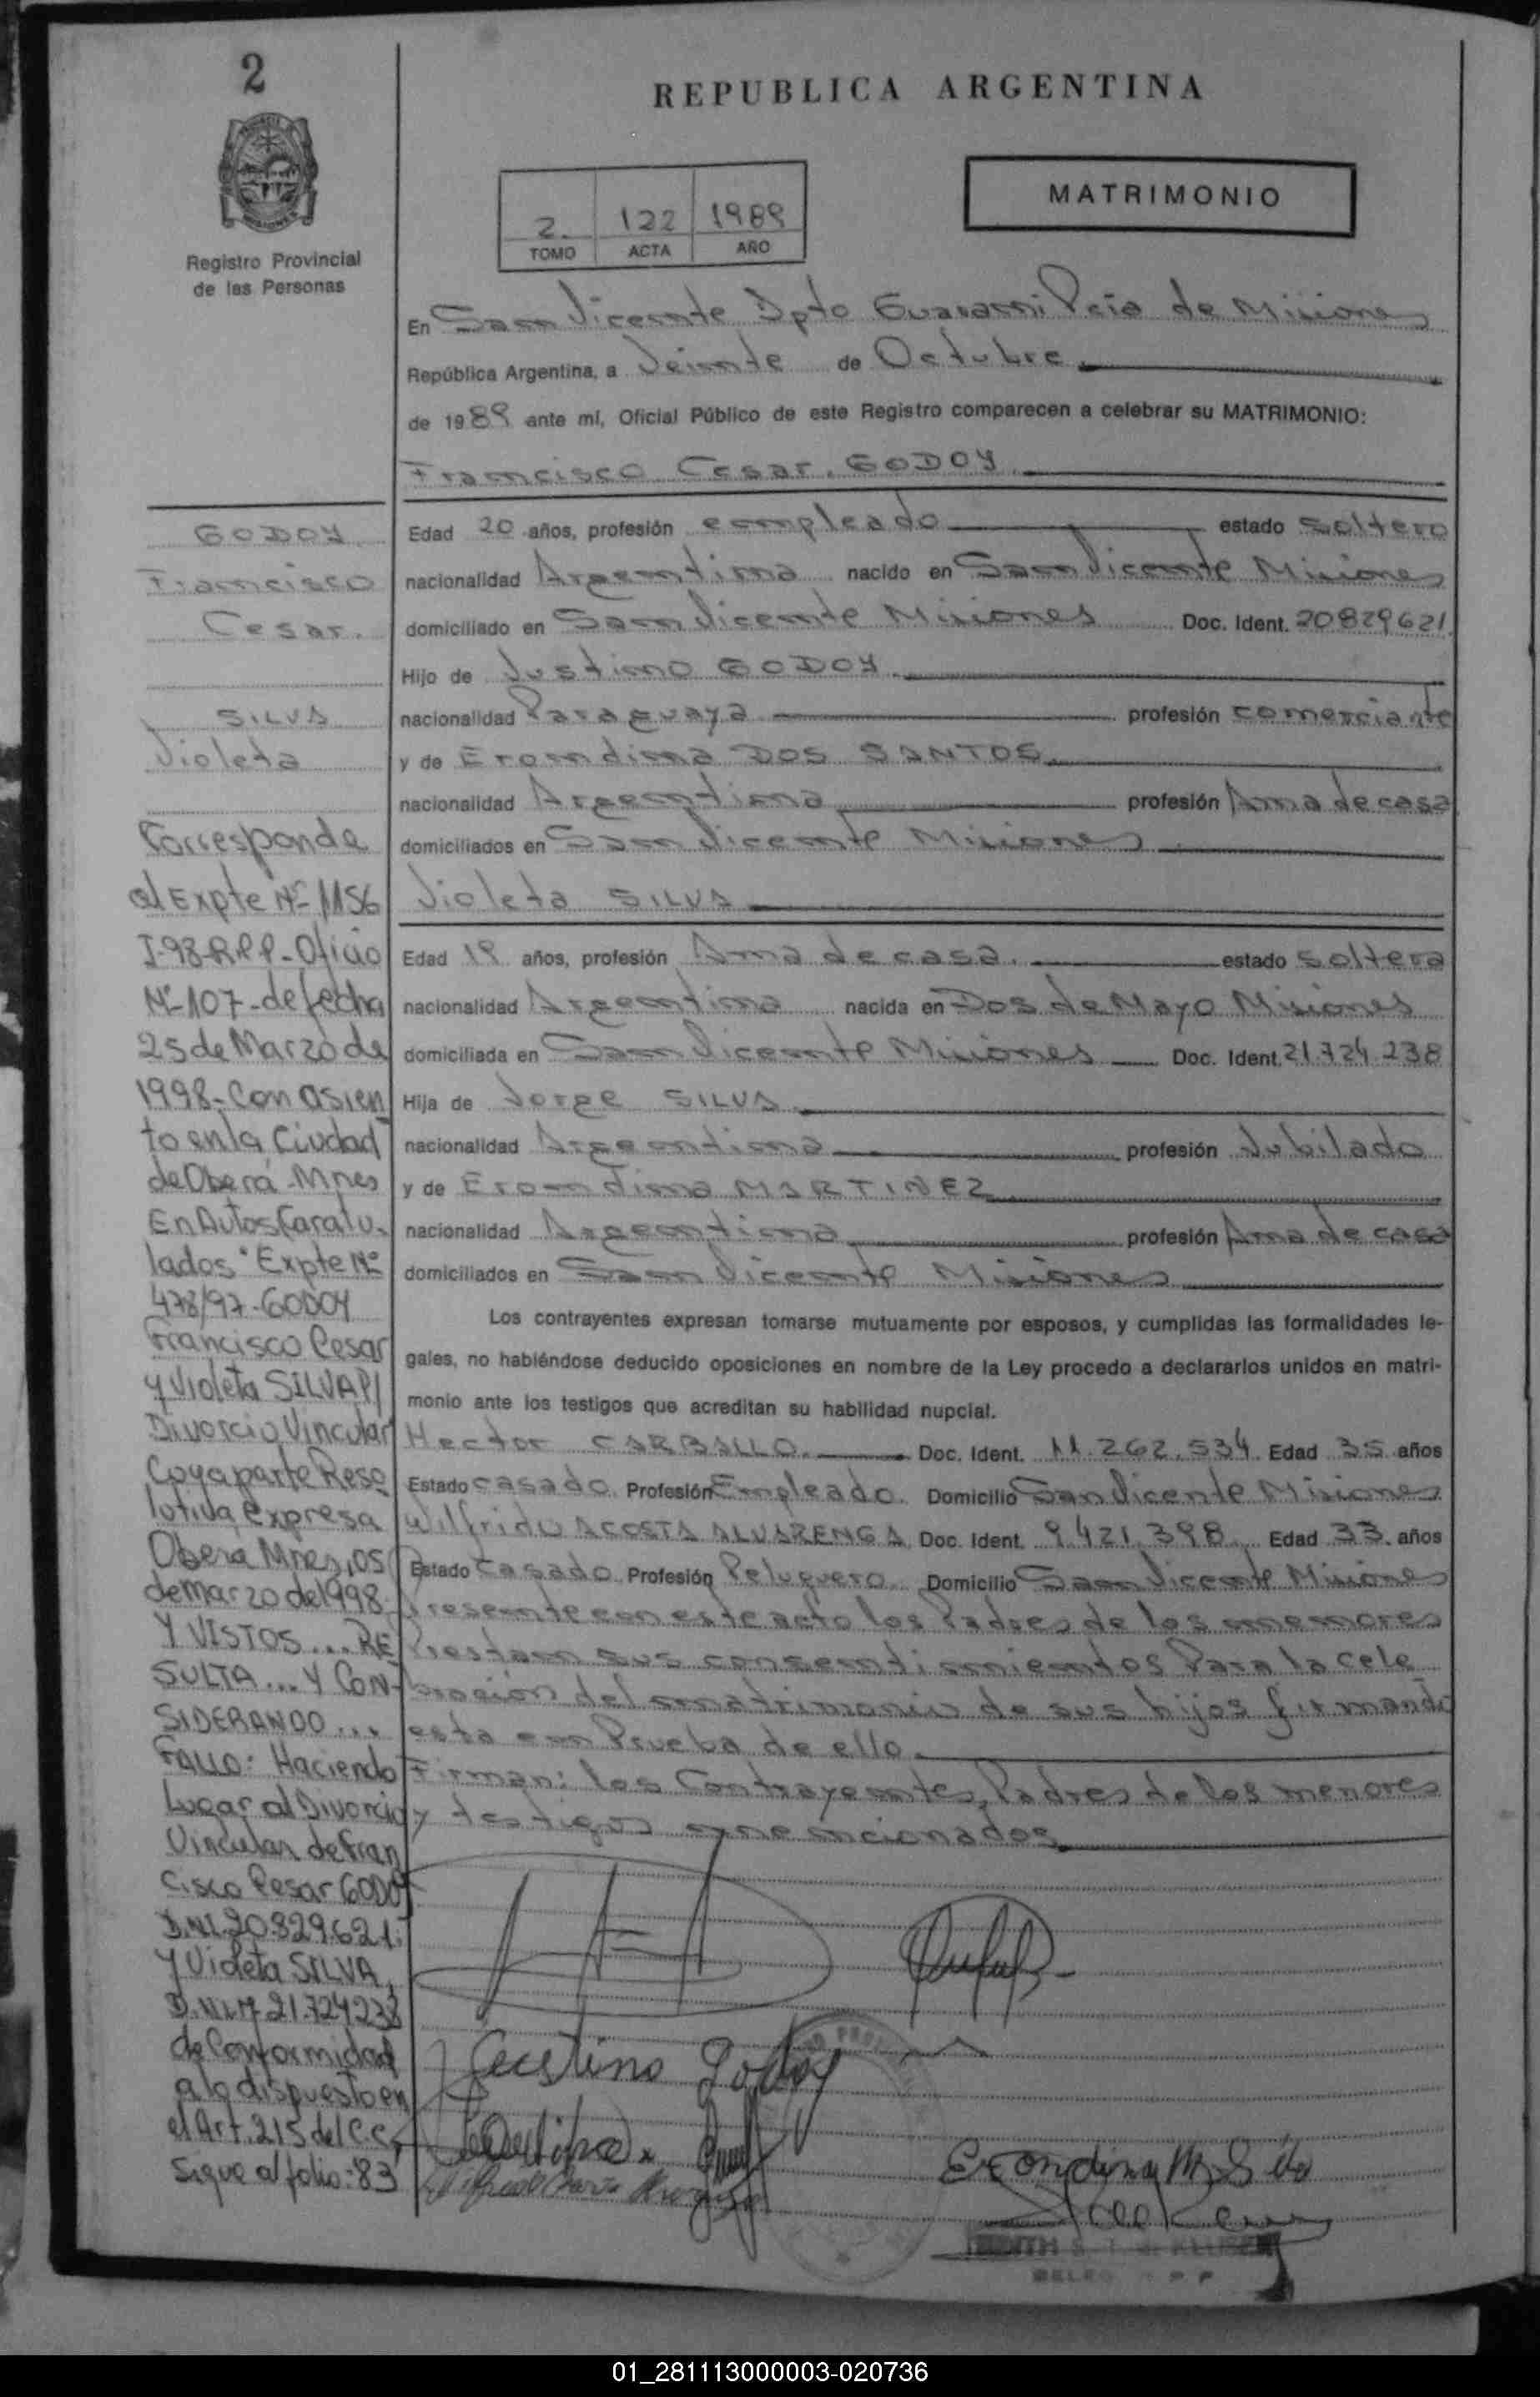 2
REPUBLICA ARGENTINA
MATRIMONIO
2. 122 1989
TOMO ACTA AÑO
Registro Provincial
de las Personas
En San Vicente Dpto Guarani Pcia de Misiones
República Argentina, a Veinte de Octubre
de 1989 ante mí, Oficial Público de este Registro comparecen a celebrar su MATRIMONIO:
Francisco Cesar. GODOY
Edad 20 años, profesión empleado estado soltero
nacionalidad Argentina nacido en San Vicente Misiones
domiciliado en San Vicente Misiones Doc. Ident. 20829621
Hijo de Justino GODOY
nacionalidad Paraguaya profesión comerciante
y de Erondina DOS SANTOS
nacionalidad Argentina profesión Ama de casa
domiciliados en San Vicente Misiones
Violeta SILVA
Edad 19 años, profesión Ama de casa. estado soltera
nacionalidad Argentina nacida en Dos de Mayo Misiones
domiciliada en San Vicente Misiones Doc. Ident. 21.724.238
Hija de Jorge SILVA
nacionalidad Argentina profesión Jubilado
y de Erondina MARTINEZ
nacionalidad Argentina profesión Ama de casa
domiciliados en San Vicente Misiones
Los contrayentes expresan tomarse mutuamente por esposos, y cumplidas las formalidades le-
gales, no habiéndose deducido oposiciones en nombre de la Ley procedo a declararlos unidos en matri-
monio ante los testigos que acreditan su habilidad nupcial.
Hector CARBALLO. Doc. Ident. 11.262.534 Edad 35 años
Estado casado Profesión Empleado Domicilio San Vicente Misiones
Wilfrido ACOSTA ALVARENGA Doc. Ident. 9.421.398 Edad 33 años
Estado casado Profesión Peluquero Domicilio San Vicente Misiones
Presente en este acto los Padres de los menores
Prestan sus consentimientos Para la cele
bración del matrimonio de sus hijos firmando
esta en Prueba de ello.
Firman: los Contrayentes, Padres de los menores
y testigos mencionados
Justino Godoy
Erondina M S
GODOY
Francisco
Cesar.
SILVA
Violeta
Corresponde
al Expte Nº 1156
I-98-RPP-Oficio
Nº-107-de fecha
25 de Marzo de
1998-Con asien
to en la Ciudad
de Oberá-Mnes
En Autos Caratu-
lados "Expte Nº
478/97-GODOY
Francisco Cesar
y Violeta SILVA P/
Divorcio Vincular
Cuya parte Reso
lutiva expresa
Obera Mnes, 05
de Marzo de 1998.
Y VISTOS... RE
SULTA... Y CON-
SIDERANDO...
FALLO: Haciendo
Lugar al Divorcio
Vincular de Fran
cisco Cesar GODOY
D.N.I.20.829.621.
y Violeta SILVA,
D.N.I.Nº 21.724238
de Conformidad
a lo dispuesto en
el Art.215 del C.C.
Sigue al folio:83
01_281113000003-020736